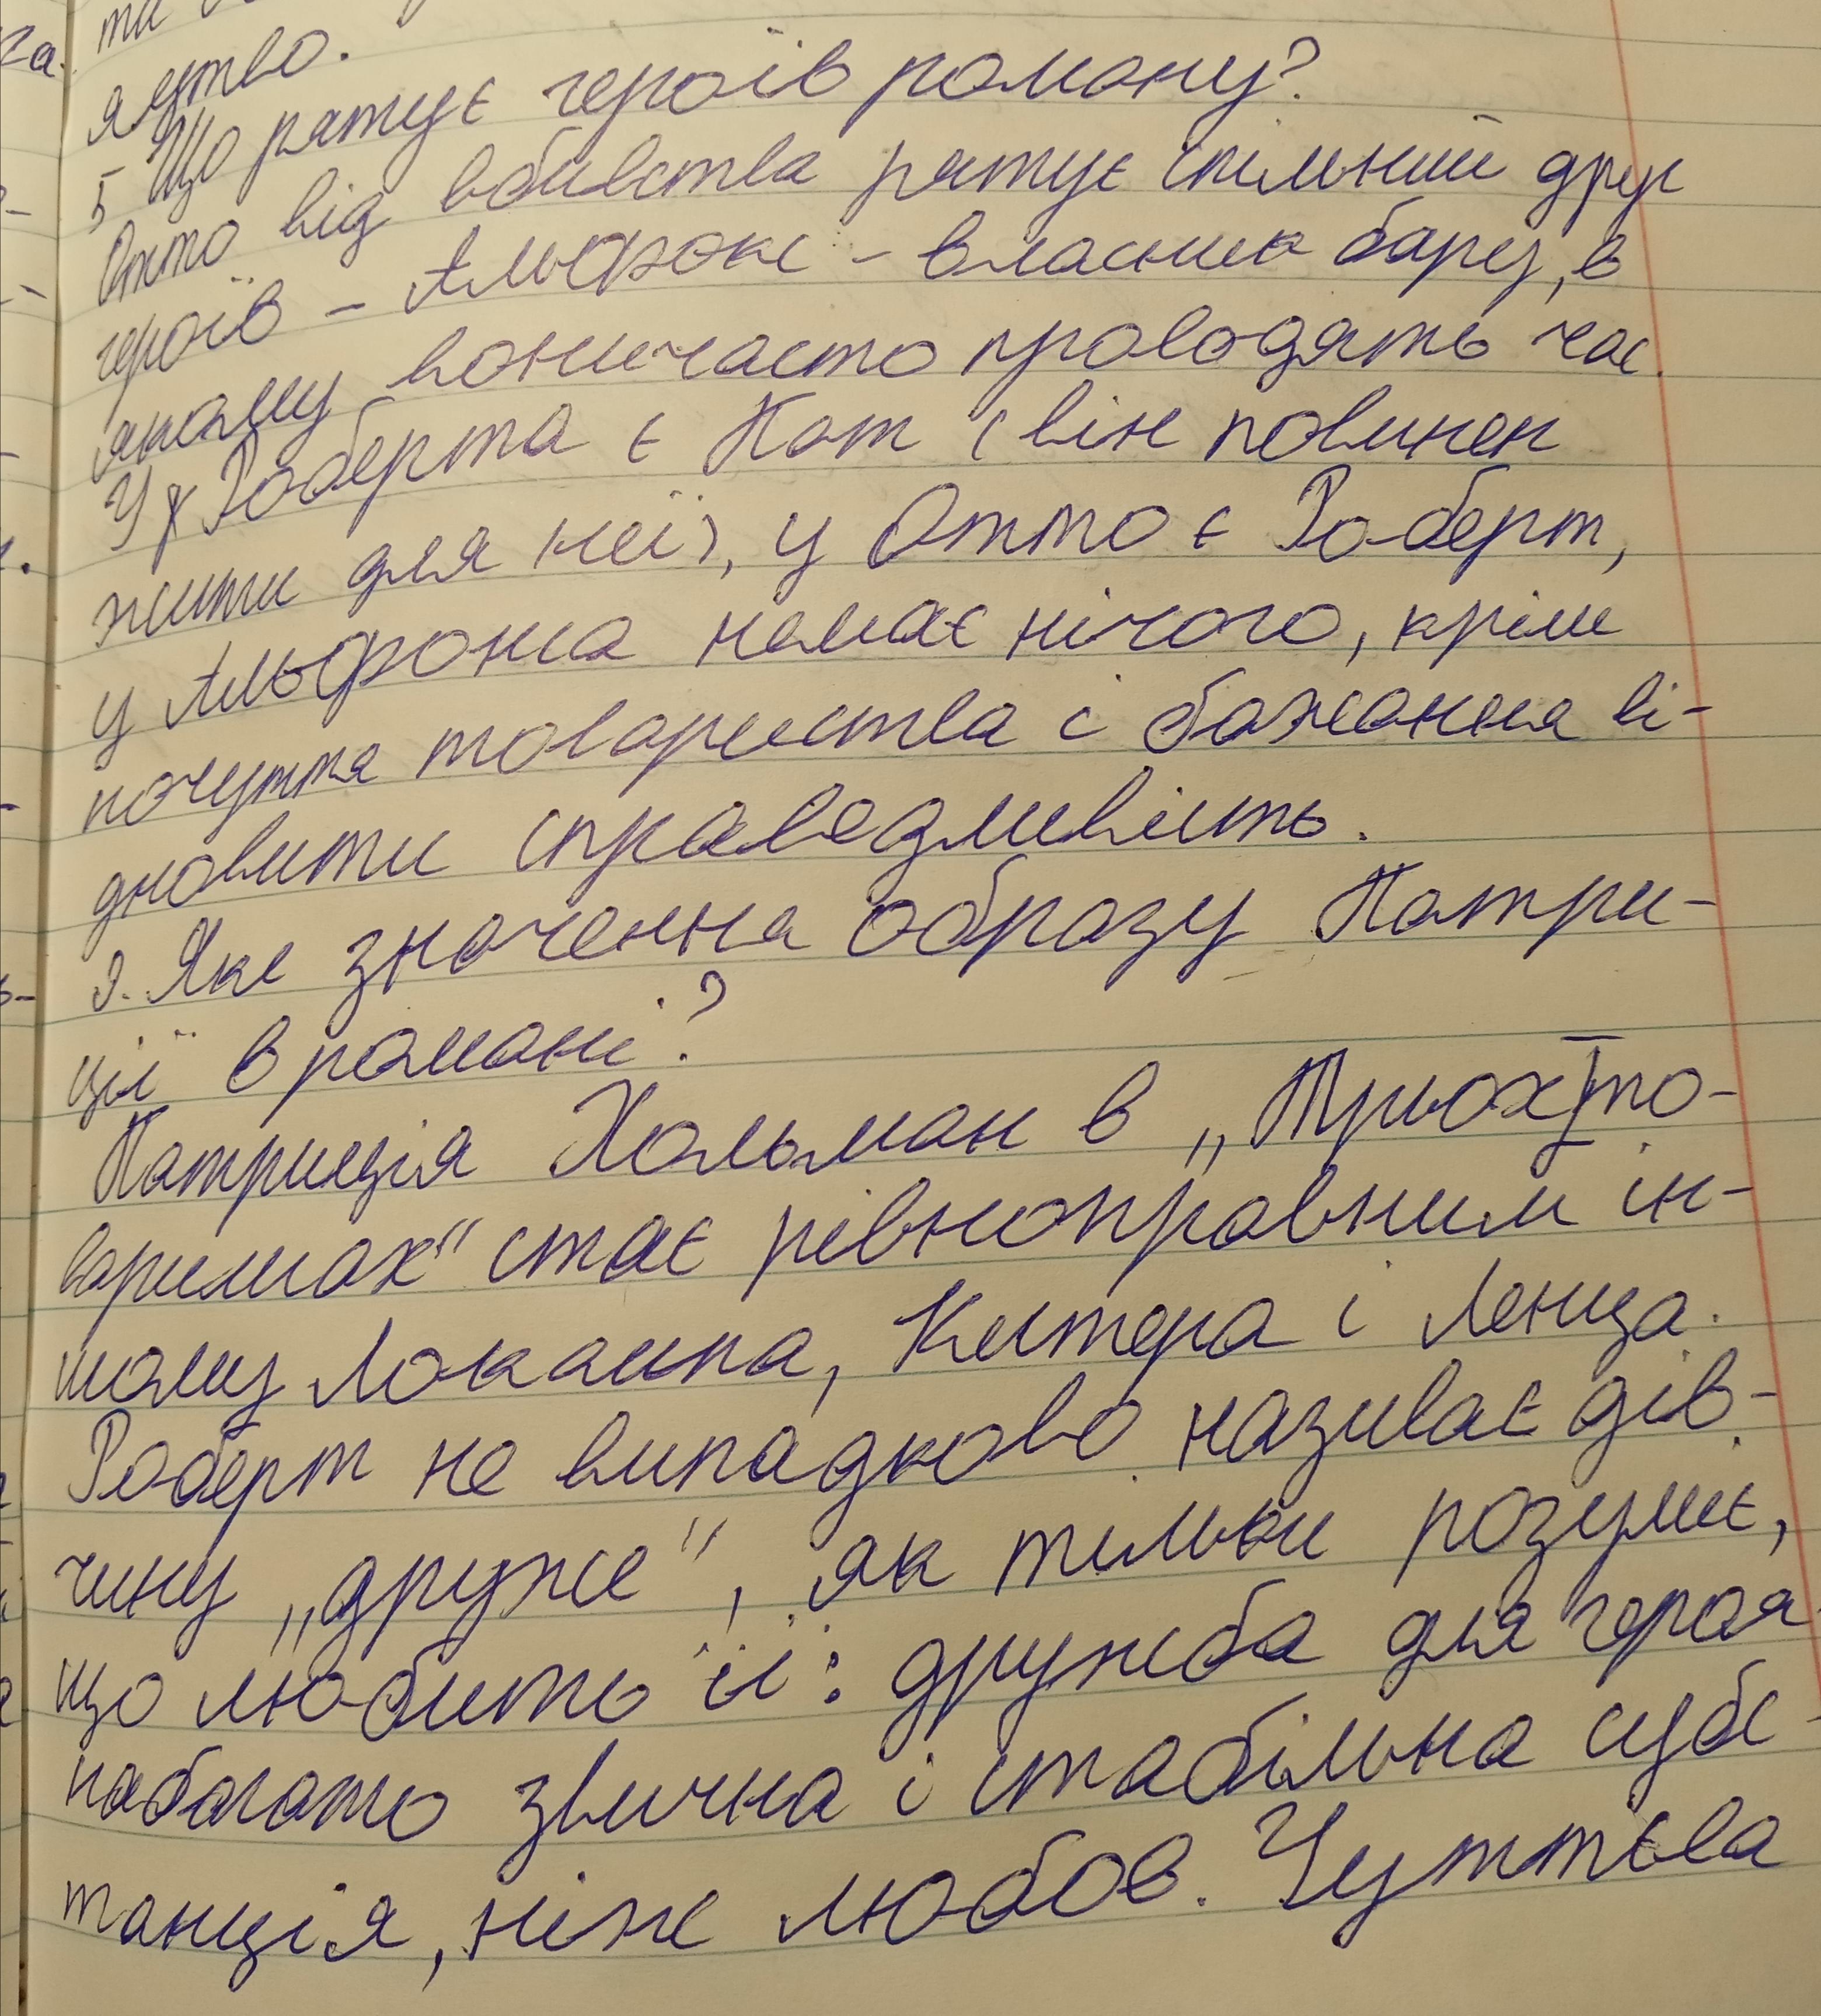 та
я
5 Що рятує героїв роману?
Отто від вбивства рятує спільний друг
героїв - Альфонс - власник бару, в
якому вони часто проводять час.
У Роберта є Пат (він повинен
жити для неї), у Отто є Роберт,
у Альфонса немає нічого, крім
почуття товариства і бажання ві-
дновити справедливість.
9. Яке значення образу Патри-
ції в романі?
Патриція Хольман в „Трьох то-
варишах" стає рівноправним ін-
шому Локампа, Кестера і Ленца.
Роберт не випадково називає дів-
чину „друже", як тільки розуміє,
що любить її: дружба для героя
набагато звична і стабільна субс-
танція, ніж любов. Чуттєва